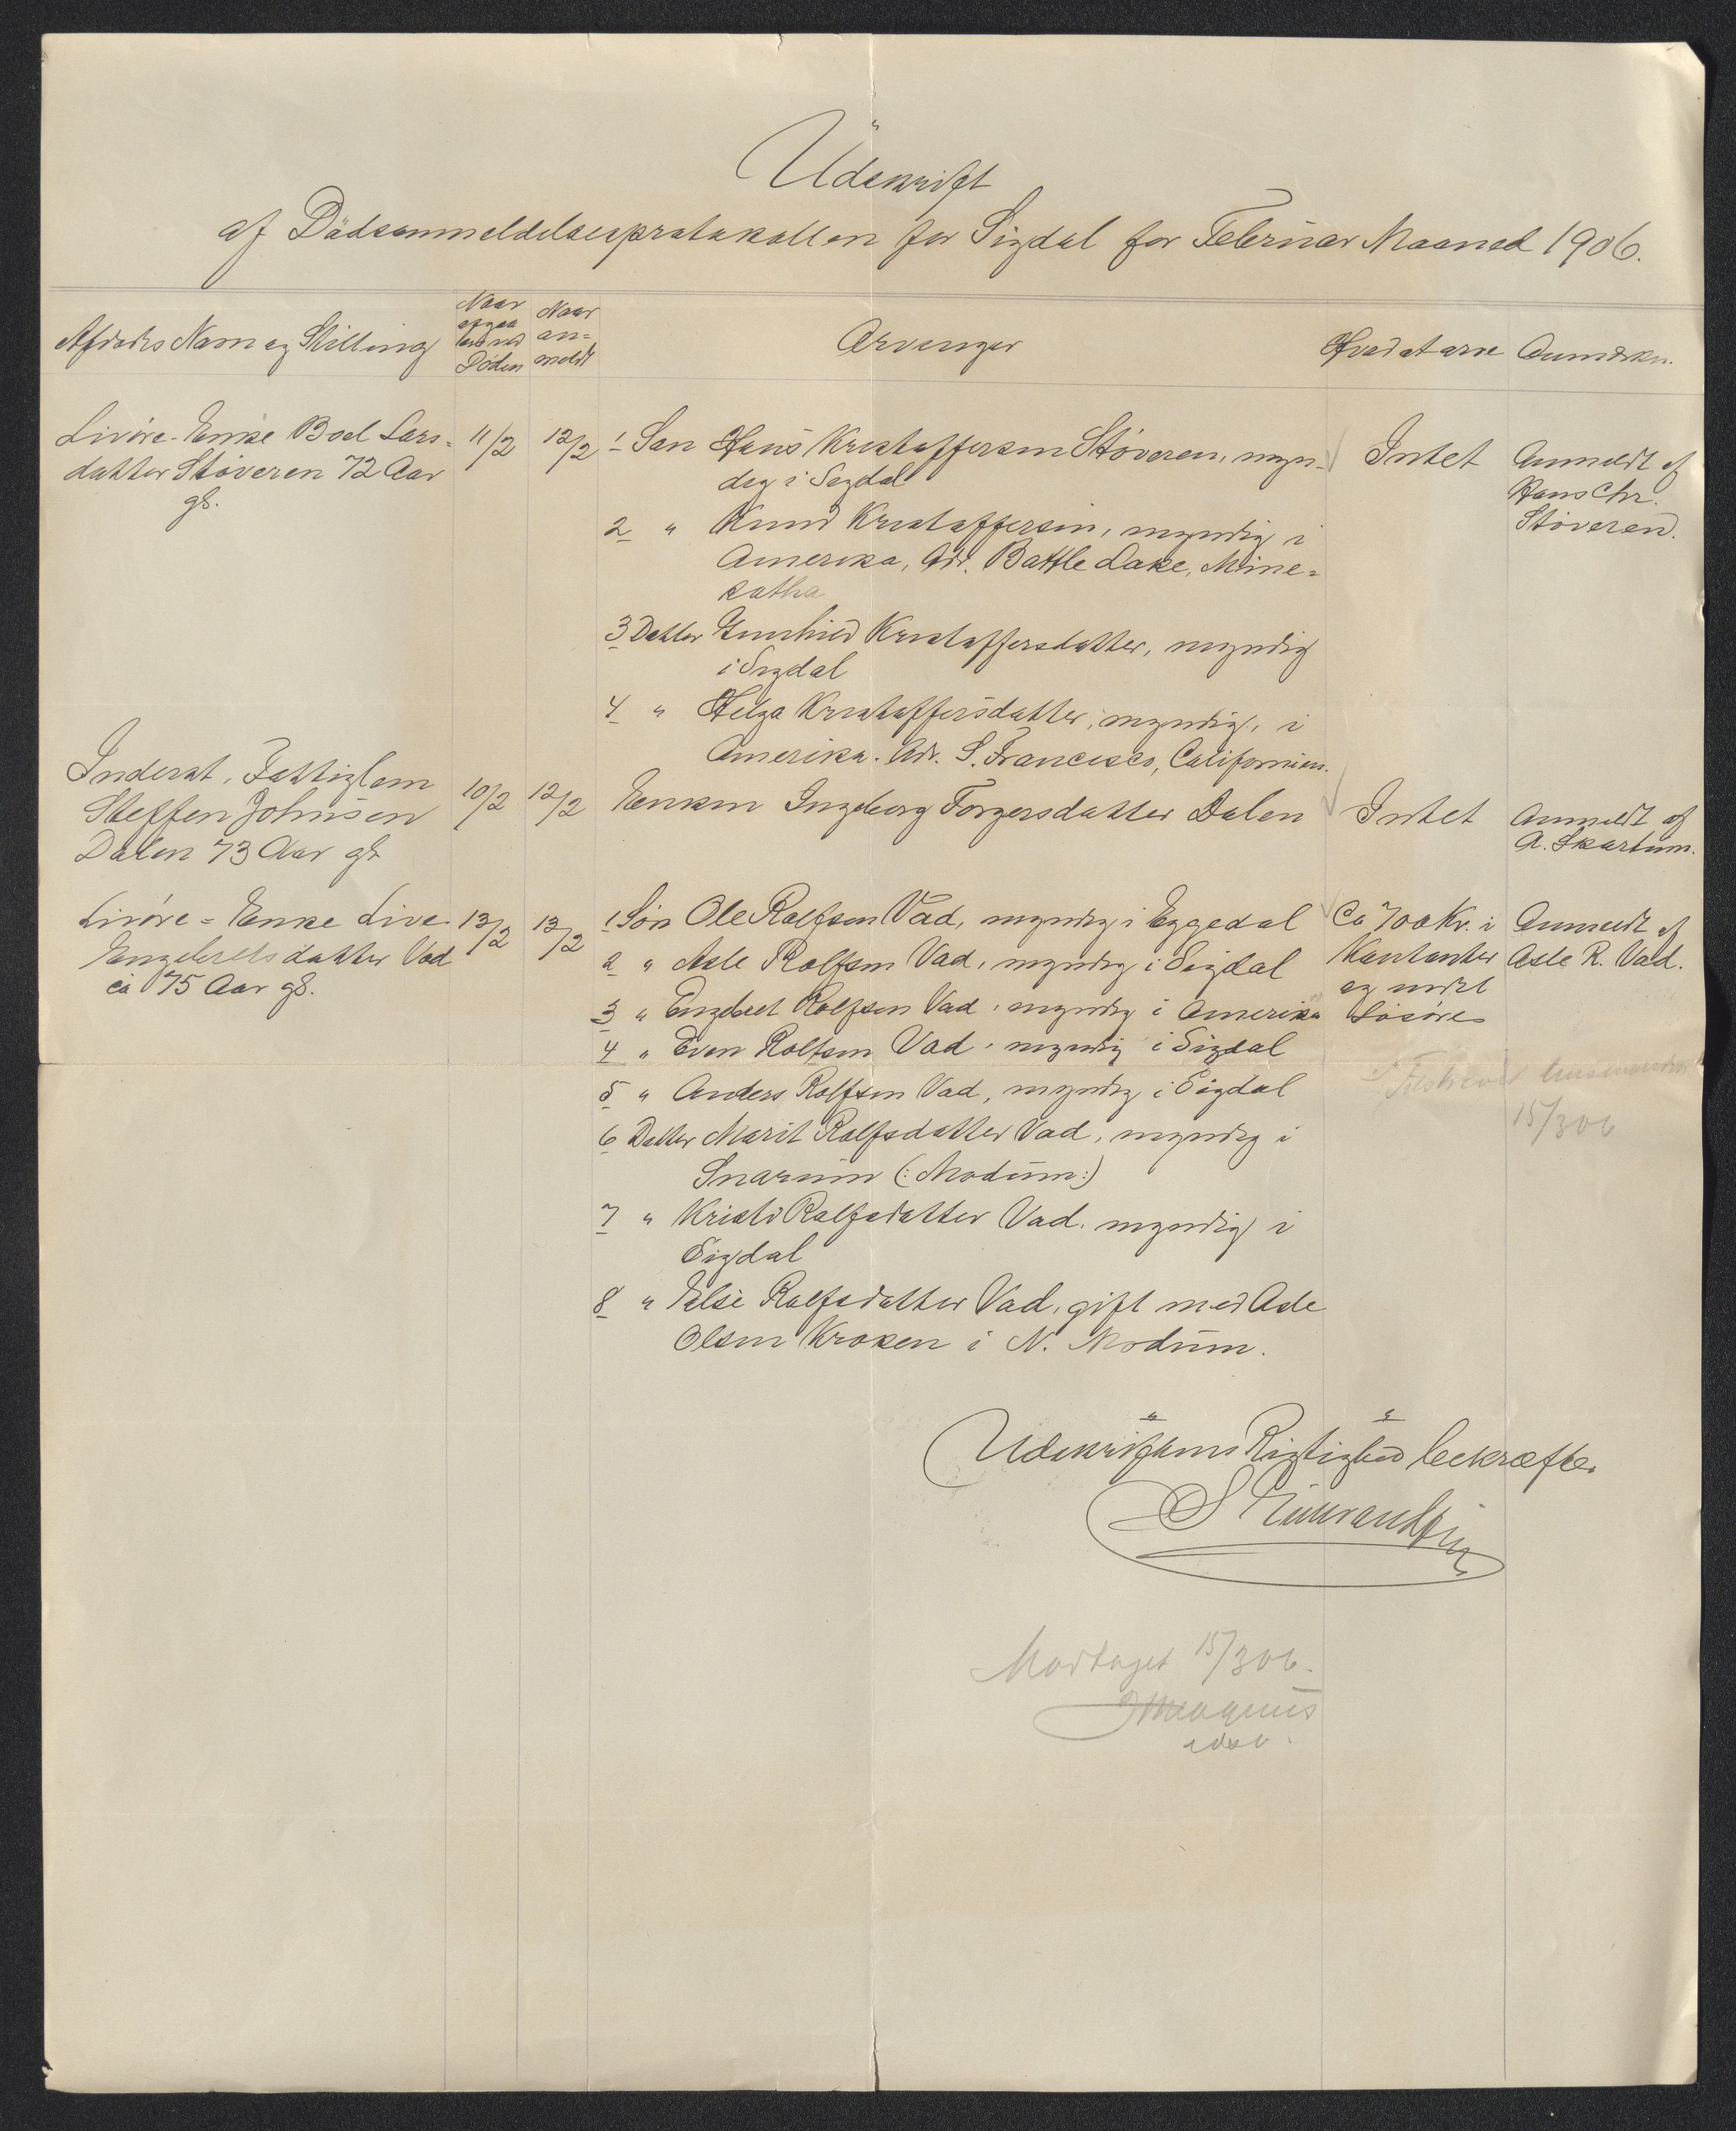 Udskrift
af Dødsanmeldelsesprotokollen for Sigdal for Februar Maaned 1906.
Afdødes Navn og Stilling
Naar
afgaa
ved
Døden
Naar
an=
meldt
Arvinger
Hvad at arve
Anmærkn.
Livøre-Enke Boel Lars=
datter Støveren 72 Aar
gl.
11/2
12/2
1 Søn Hans Kristoffersen Støveren, myn-
dig i Sigdal
2 " Knud Kristoffersen, myndig i
Amerika, Adr. Battle Lake, Mine=
sotha
3 Datter Gunhild Kristoffersdatter, myndig
i Sigdal
4 " Helga Kristoffersdatter, myndig, i
Amerika. Adr. S. Francisco, Californien.
Intet
Anmeldt af
Hans Chr.
Støveren.
Inderst, Fattiglem
Steffen Johnsen
Dalen 73 Aar gl.
10/2
12/2
Enken Ingeborg Torgersdatter Dalen
Intet
Anmeldt af
A. Skartum.
Livøre=Enke Live
Engebretsdatter Vad
ca 75 Aar gl.
13/2
13/2
1 Søn Ole Rolfsen Vad, myndig i Eggedal
2 " Asle Rolfsen Vad, myndig i Sigdal
3 " Engebret Rolfsen Vad, myndig i Amerika
4 " Even Rolfsen Vad, myndig i Sigdal
5 " Anders Rolfsen Vad, myndig i Sigdal
6 Datter Marit Rolfsdatter Vad, myndig i
Snarum (: Modum:)
7 " Kristi Rolfsdatter Vad, myndig i
Sigdal
8 " Else Rolfsdatter Vad, gift med Asle
Olsen Kroken i N. Modum.
Ca 700 Kr. i
Kontanter
og indst
Løsøre
Anmeldt af
Asle R. Vad.
15/3 06
Udskriftens Rigtighed bekræfter
Modtaget 15/3 06.